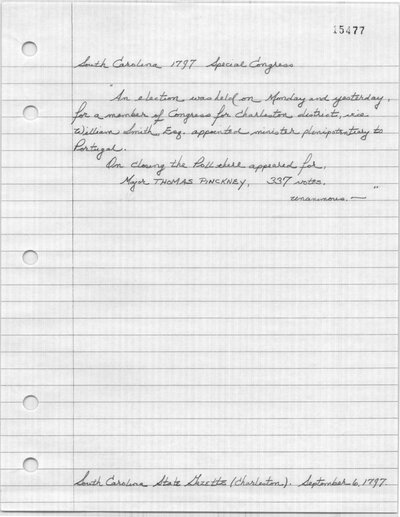 15477
South Carolina 1797 Special Congress
"An election was held on Monday and yesterday,
for a member of Congress for Charleston district, vice
William Smith, Esq. appointed minister plenipotentiary to
Portugal.
On closing the Poll there appeared for,
Major THOMAS PINCKNEY, 337 votes.
unanimous.— "
South Carolina State Gazette (Charleston). September 6, 1797.